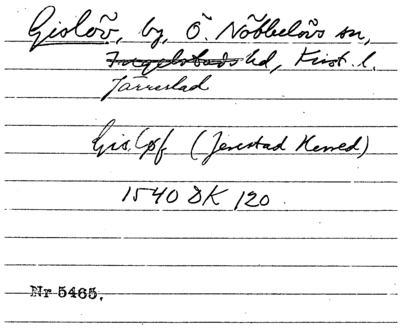 Gislöv, by, Ö. Nöbbelövs sn,
Ingelstads hd, Krist. l.
Järrestad
Gisløf (Jerestad Herred)
1540 DK 120.
Nr 5465.